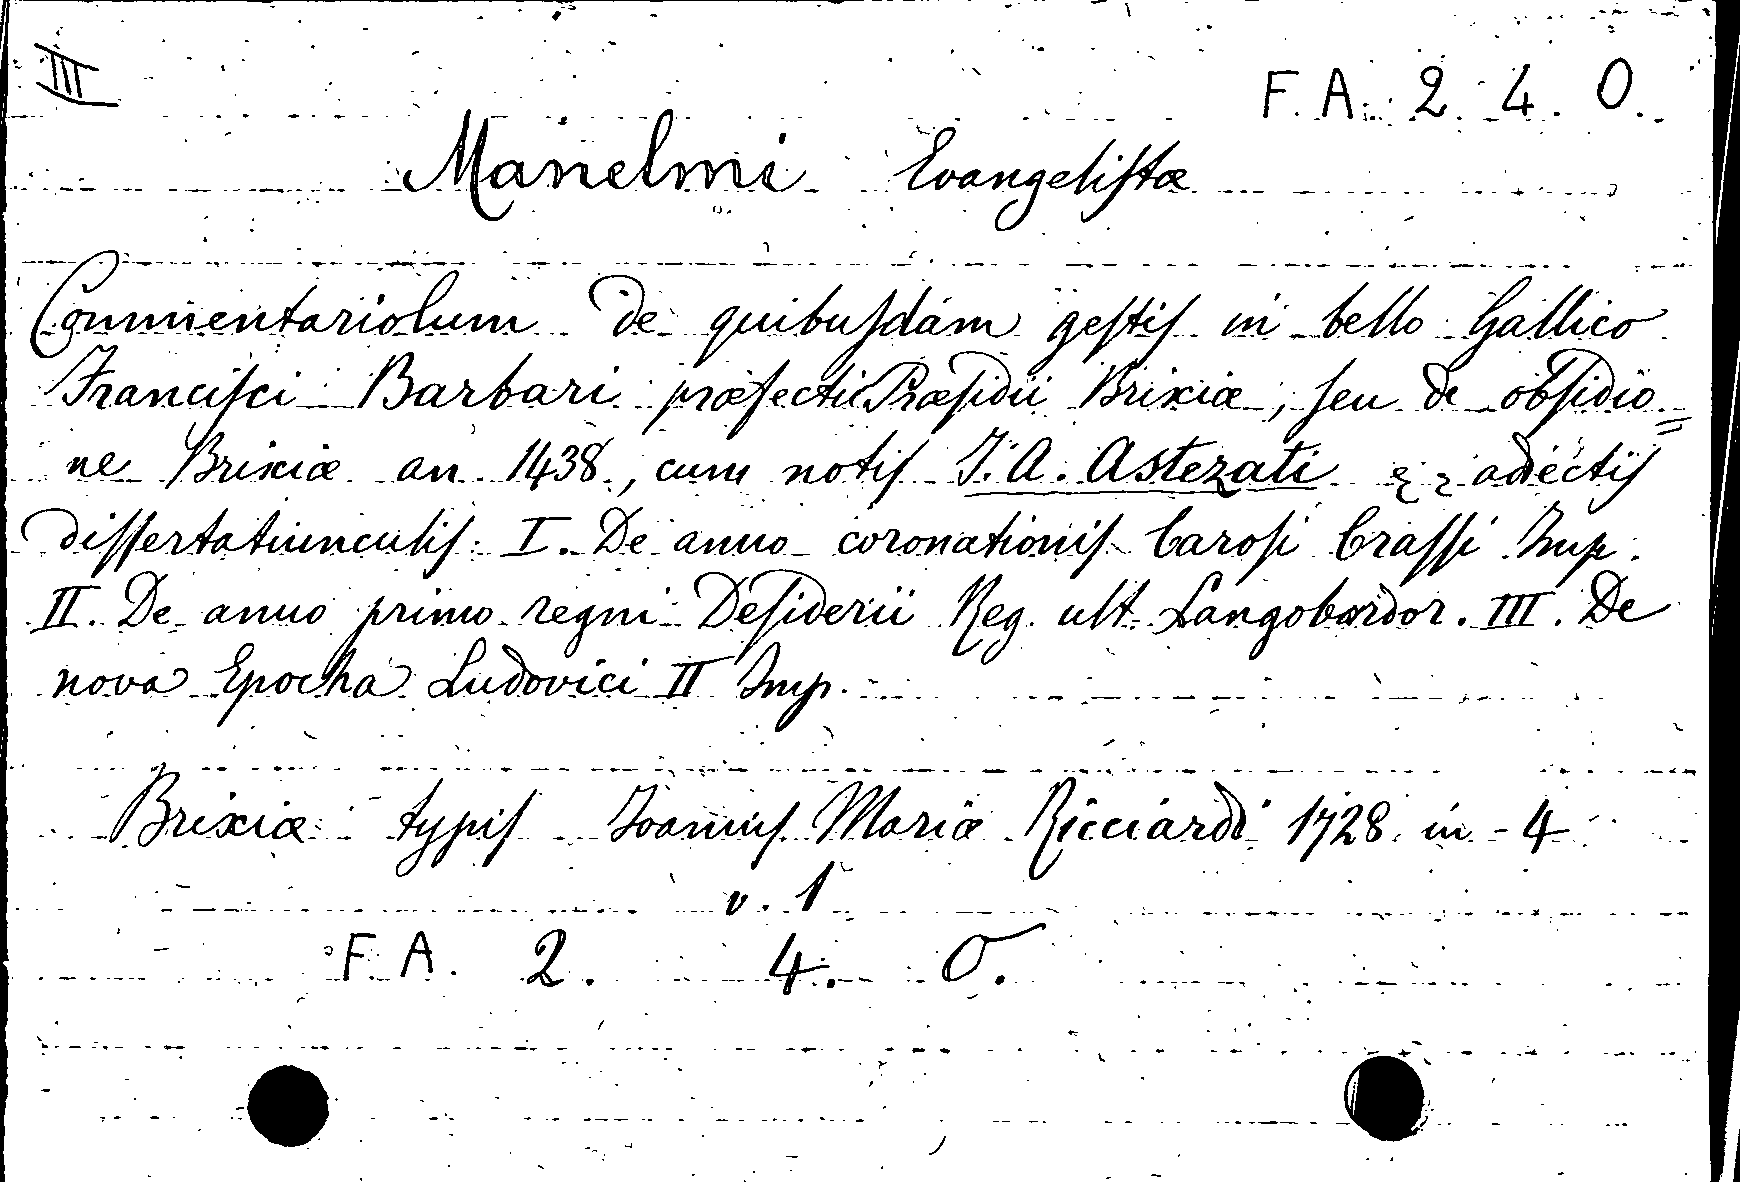 III
F. A. 2. 4. O.
Manelmi Evangelistæ
Commentariolum de quibusdam gestis in bello Gallico
Francisci Barbari præfecti Præsidii Brixiæ, seu de obsidio=
ne Brixiæ an 1438, cum notis J. A. Astezati adiectis
dissertatiunculis. I. De anno coronationis Caroli Crassi Imp.
II. De anno primo regni Desiderii Reg. ult. Langobardor. III. De
nova Epocha Ludovici II Imp.
Brixiæ typis Joannis Mariæ Ricciardi 1728 in-4
v. 1
F. A. 2. 4. O.